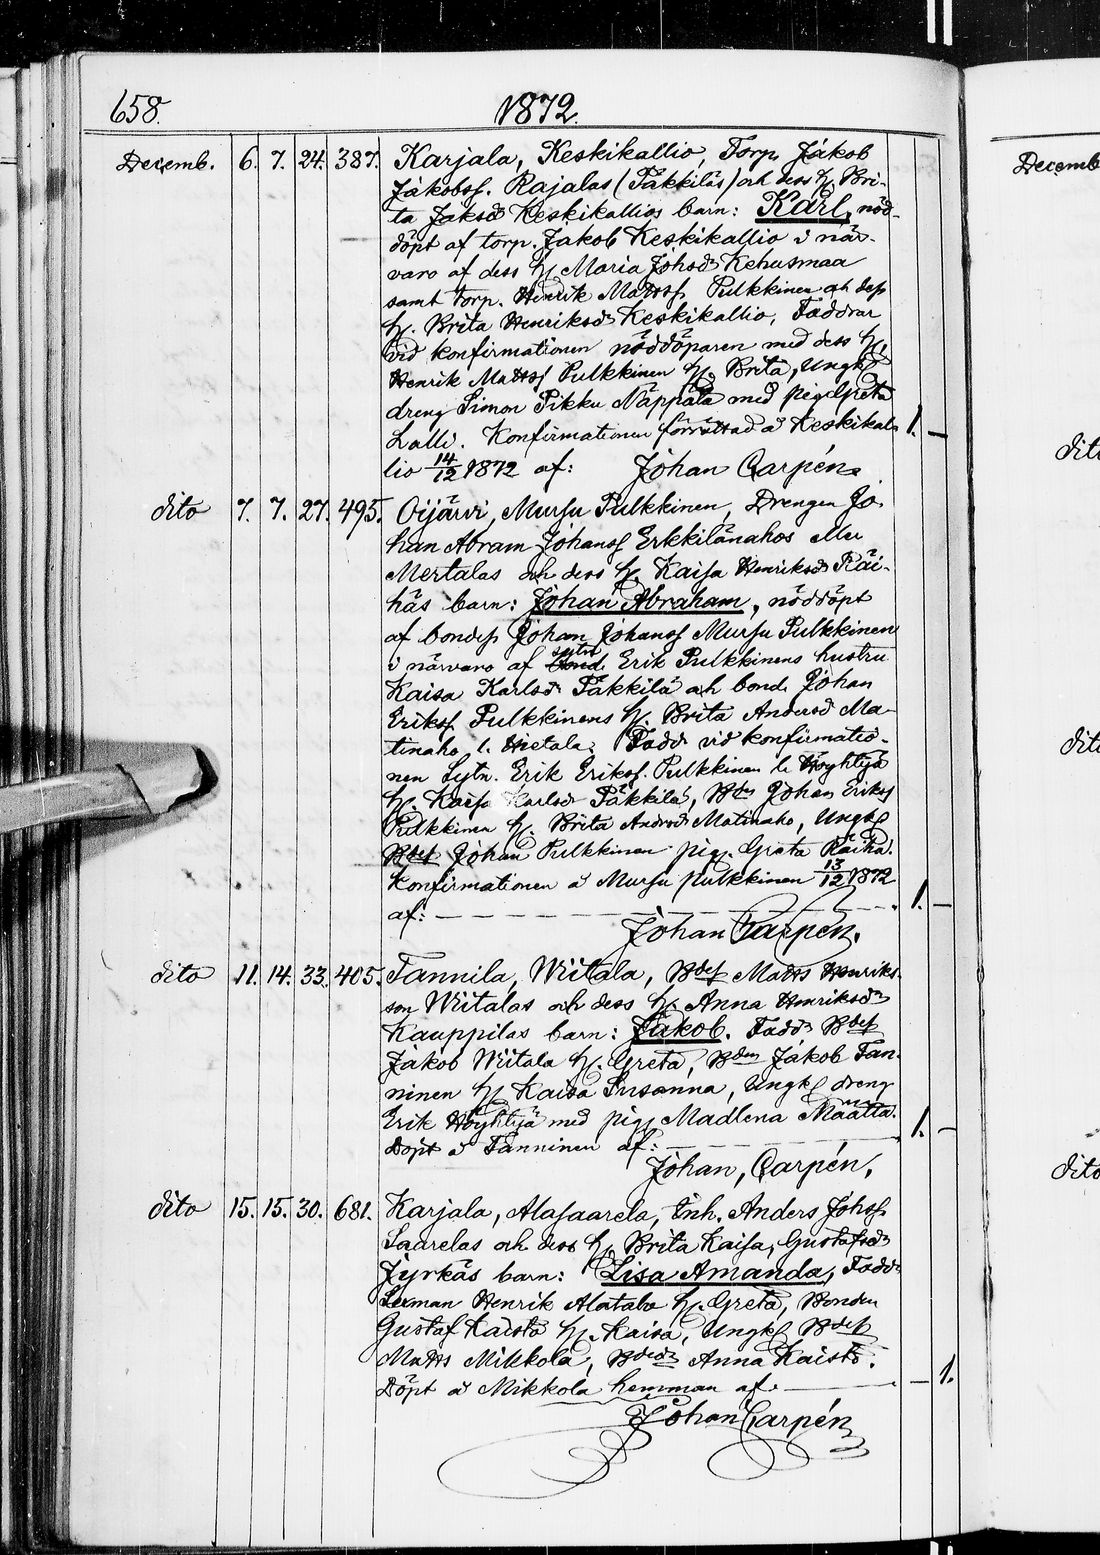 658. 1872.
Decemb. 6. 7. 24. 387. Karjala, Keskikallio, Torp. Jakob
Jakobsf. Rajalas (Täkkiläs) och dess h. Bri-
ta Jaksdr Keskikallios barn: Karl, nöd-
döpt af torp. Jakob Keskikallio i när-
varo af dess h. Maria Johsdr Kehusmaa
samt torp. Henrik Mattsf Pulkkinen och dess
h. Brita Henriksdr Keskikallio, Faddrar
vid konfirmationen nöddöparen med dess h.
Henrik Mattsf Pulkkinen h. Brita, Ungk.
dreng Simon Pikku Näppälä med pig. Greta
Lalli. Konfirmationen förrättad å Keskikal- 1. —
lio 14/12 1872 af: Johan Carpén.
dito 7. 7. 27. 495. Oijärvi, Mursu Pulkkinen, Drengen Jo-
han Abram Johansf Erkkilänahos
Mertalas och dess h. Kaisa Henriksdr Räi-
häs barn: Johan Abraham, nöddöpt
af bondes. Johan Johansf Mursu Pulkkinen
i närvaro af sytn Erik Pulkkinens hustru
Kaisa Karlsdr Täkkilä och bond. Johan
Eriksf. Pulkkinens h. Brita Andersdr Ma-
tinaho l. Hietala. Fadd. vid konfirmatio-
nen Sytn. Erik Eriksf. Pulkkinen l. Höyhtyä
h. Kaisa Karlsdr Täkkilä, Bdn Johan Eriksf
Pulkkinen h. Brita Andersdr Matinaho, Ungk.
Bdes Johan Pulkkinen pig. Greta Räihä.
Konfirmationen å Mursu Pulkkinen 13/12 1872
af: — — — — — — — — 1. —
Johan Carpén.
dito 11. 14. 33. 405. Tannila, Wiitala, Bdes Matts Henriks-
son Wiitalas och dess h. Anna Henriksdr
Kauppilas barn: Jakob. Fadd. Bdes
Jakob Wiitala h. Greta, Bden Jakob Tan-
ninen h. Kaisa Susanna, Ungk. dreng
Erik Höyhtyä med pig. Madlena Määttä.
Döpt å Tanninen af: — — — 1. —
Johan Carpén.
dito 15. 15. 30. 681. Karjala, Alasaarela, Inh. Anders Johsf
Saarelas och dess h. Brita Kaisa, Gustafsdr
Jyrkäs barn: Lisa Amanda, Fadd.
Lexman Henrik Alatalo h. Greta, Bonden
Gustaf Kaisto h. Kaisa, Ungk. Bdes
Matts Mikkola, Bdedr Anna Kaisto.
Döpt å Mikkola hemman af. — — 1.
Johan Carpén
Decemb
dito
dito
dito